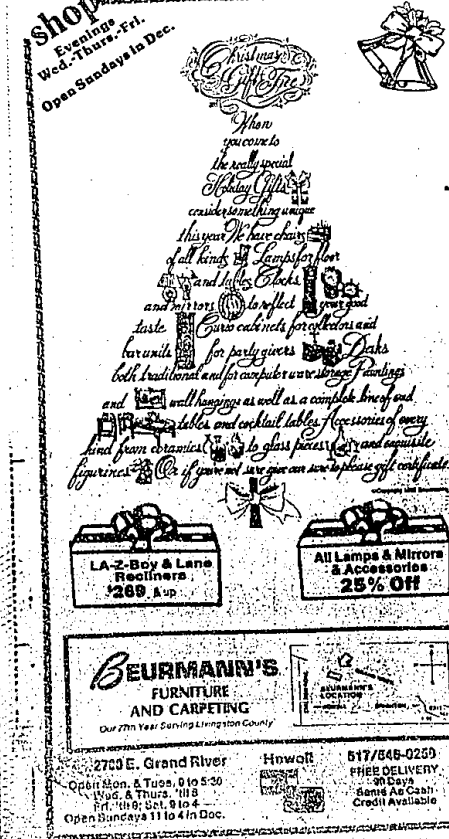 shop
Evenings
Wed.-Thurs.-Fri.
Open Sundays in Dec.
Christmas
Gift Tree
When
you come to
the really special
Holiday Gifts
consider something unique
this year We have chairs
of all kinds Lamps for floor
and tables Clocks
and mirrors to reflect your good
taste Curio cabinets for collectors and
bar units for party givers Desks
both traditional and for computer ware storage Paintings
and wall hangings as well as a complete line of end
tables and cocktail tables Accessories of every
kind from ceramics to glass pieces and exquisite
figurines Or if you're not sure give our sure to please gift certificate
LA-Z-Boy & Lane
Recliners
$269 & up
All Lamps & Mirrors
& Accessories
25% Off
BEURMANN'S
FURNITURE
AND CARPETING
Our 77th Year Serving Livingston County
BEURMANN'S
LOCATION
2700 E. Grand River Howell 517/546-0250
Open Mon. & Tues. 9 to 5:30
Wed. & Thurs. 'til 8
Fri. 'til 9; Sat. 9 to 4
Open Sundays 11 to 4 in Dec.
FREE DELIVERY
90 Days
Same As Cash
Credit Available